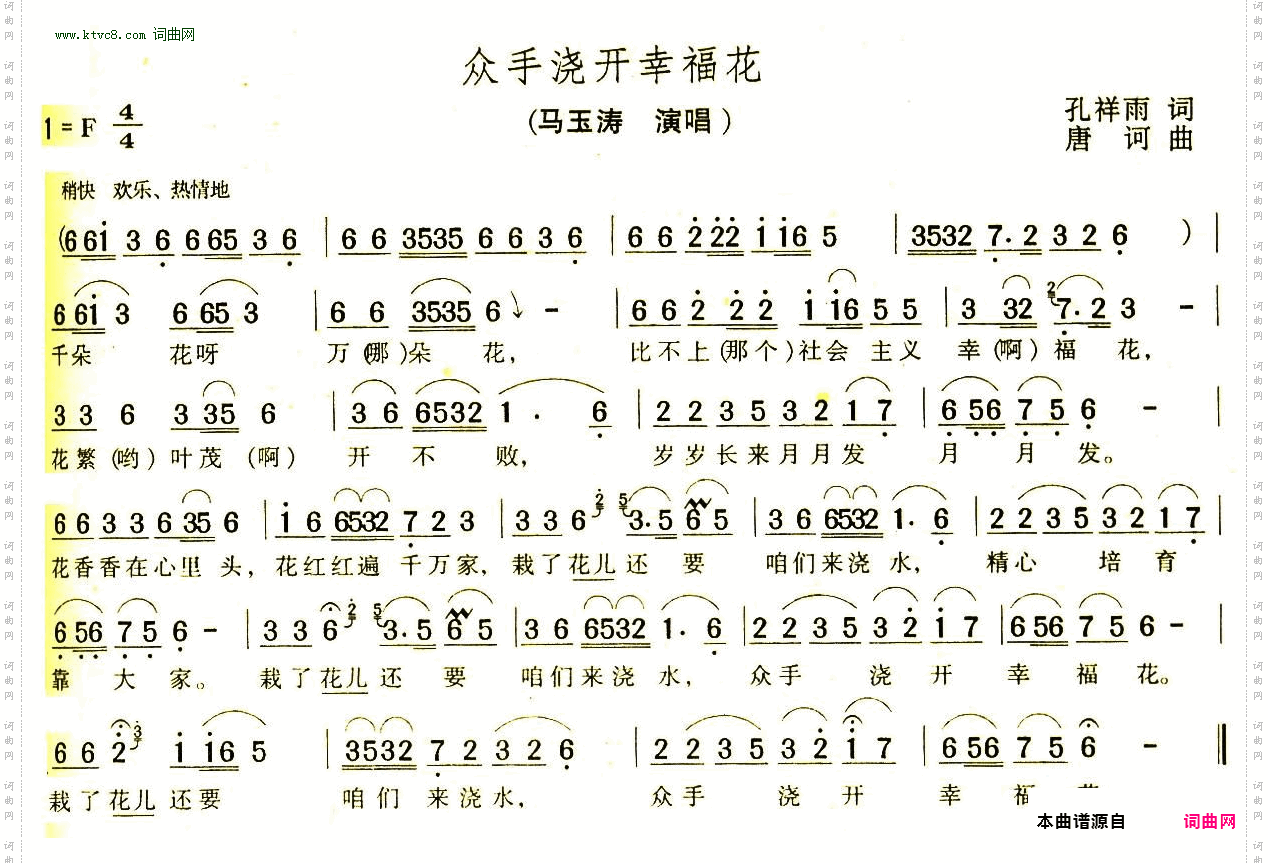 www.ktvc8.com 词曲网
众手浇开幸福花
(马玉涛 演唱)
1=F 4/4
孔祥雨 词
唐 诃 曲
稍快 欢乐、热情地
(6 6 6 i 3 6 6 6 5 3 6 | 6 6 3 5 3 5 6 6 3 6 | 6 6 2 2 2 1 1 6 5 | 3 5 3 2 7. 2 3 2 6 ) |
6 6 i 3 6 6 5 3 | 6 6 3 5 3 5 6 - | 6 6 2 2 2 1 1 6 5 5 | 3 3 2 2 7. 2 3 - |
千朵 花呀 万(那)朵 花, 比不上(那个)社会 主义 幸(啊)福 花,
3 3 6 3 3 5 6 | 3 6 6 5 3 2 1 . 6 | 2 2 3 5 3 2 1 7 | 6 5 6 7 5 6 - |
花繁(哟)叶茂(啊) 开 不 败, 岁岁长来月月发 月 月 发。
6 6 3 3 6 3 5 6 | i 6 6 5 3 2 7 2 3 | 3 3 6 2 5 3. 5 6 5 | 3 6 6 5 3 2 1. 6 | 2 2 3 5 3 2 1 7 |
花香香在心里 头, 花红红遍 千万家, 栽了花儿还 要 咱们来浇水, 精心 培 育
6 5 6 7 5 6 - | 3 3 6 2 5 3. 5 6 5 | 3 6 6 5 3 2 1. 6 | 2 2 3 5 3 2 i 7 | 6 5 6 7 5 6 - |
靠 大 家。 栽了花儿还 要 咱们来浇 水, 众手 浇 开 幸 福 花。
6 6 2 3 i i 6 5 | 3 5 3 2 7 2 3 2 6 | 2 2 3 5 3 2 i 7 | 6 5 6 7 5 6 - ‖
栽了花儿还要 咱们 来浇水, 众手 浇 开 幸
本曲谱源自 词曲网
词曲网